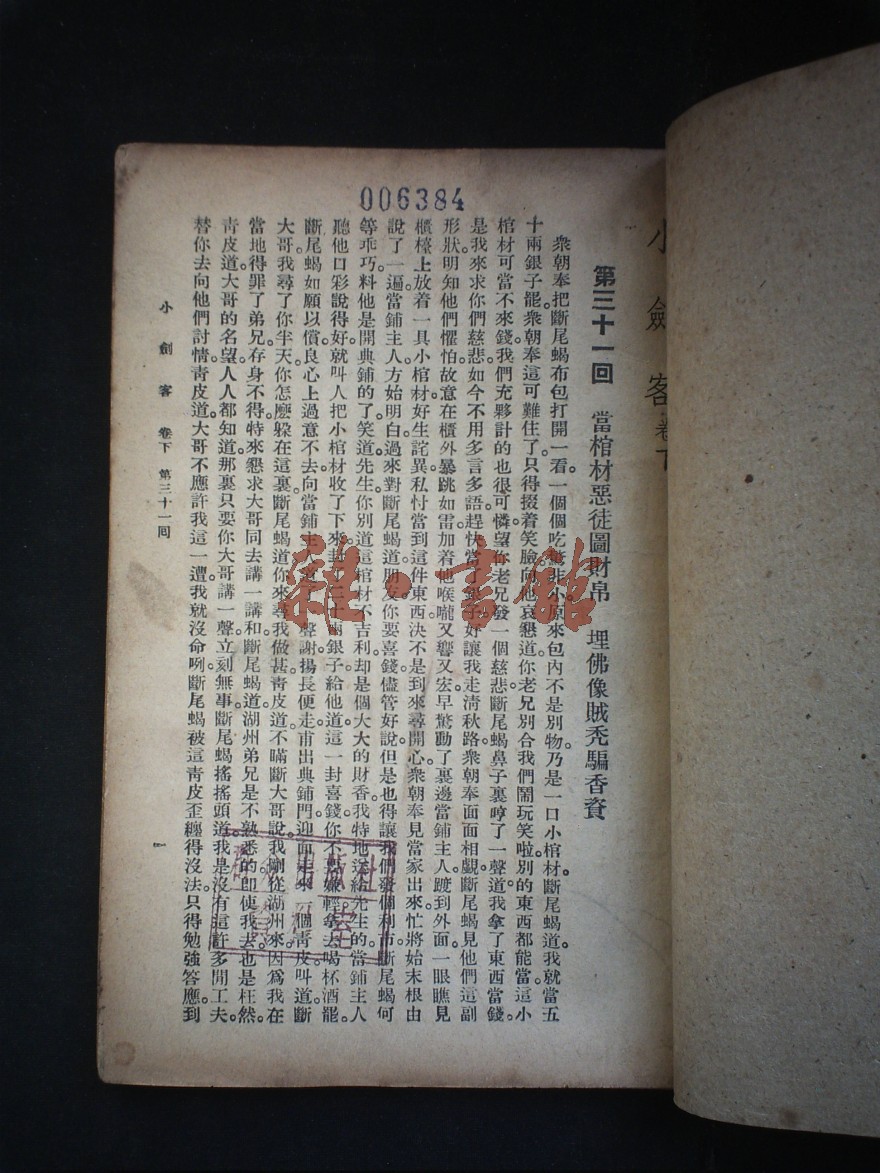 006384
小劍客卷下
第三十一回 當棺材惡徒圖財帛 埋佛像賊禿騙香資
衆朝奉把斷尾蝎布包打開一看。一個個吃驚非小。原來包內不是別物。乃是一口小棺材。斷尾蝎道。我就當五
十兩銀子罷。衆朝奉這可難住了。只得掇着笑臉。向他哀懇道。你老兄別合我們鬧玩笑啦。別的東西都能當。這小
棺材可當不來錢。我們充夥計的也很可憐。望你老兄發一個慈悲。斷尾蝎鼻子裏哼了一聲道。我拿了東西當錢。
是我來求你們慈悲。如今不用多言多語。趕快當了銀子。好讓我走清秋路。衆朝奉面面相覷。斷尾蝎見他們這副
形狀。明知他們懼怕。故意在櫃外暴跳如雷。加着他喉嚨又響又宏。早驚動了裏邊當鋪主人。踱到外面。一眼瞧見
櫃檯上放着一具小棺材。好生詫異。私忖當到這件東西。決不是到來尋開心。衆朝奉見當家出來。忙將始末根由
說了一遍。當鋪主人方始明白過來。對斷尾蝎道。朋友你要喜錢儘管好說。但是也得讓我們發個利市。斷尾蝎何
等乖巧。料他是開典鋪的了。笑道。先生。你別道這棺材不吉利。却是個大大的財香。我特地送給先生的。當鋪主人
聽他口彩說得好。就叫人把小棺材收了下來。封二十兩銀子給他道。這一封喜錢。你不要嫌輕。拿去喝杯酒罷。
斷尾蝎如願以償。良心上過意不去。向當鋪主人道了一聲謝。揚長便走。甫出典鋪門。迎面走來一個青皮。叫道。斷
大哥。我尋了你半天。你怎麽躲在這裏。斷尾蝎道。你來尋我做甚。青皮道。不瞞斷大哥說。我剛從湖州來。因爲我在
當地得罪了弟兄。存身不得。特來懇求大哥同去講一講和。斷尾蝎道。湖州弟兄是不熟悉的。卽使我去也是枉然。
青皮道。大哥的名望。人人都知道。那裏只要你大哥講一聲。立刻無事。斷尾蝎搖搖頭道。我是沒有這許多閒工夫
替你去向他們討情。青皮道。大哥不應許我這一遭。我就沒命咧。斷尾蝎被這青皮歪纏得沒法。只得勉強答應。到
小劍客 卷下 第三十一回 一
雜·書館
出版社